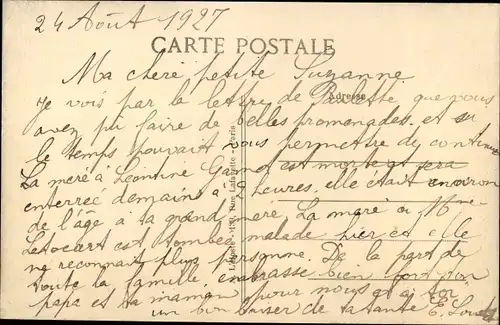 24 Août 1927
CARTE POSTALE
Ma chère petite Suzanne
Adresse
Je vois par la lettre de Paulette que vous
avez pu faire de belles promenades. et si
le temps pouvait vous permettre de continuer
La mère à Léontine est morte et sera
enterrée demains à 2 heures, elle était environ
de l'âge à ta grand mère. La mère à Mme
est tombée malade hier et elle
ne reconnait plus personne. De la part de
toute la famille, embrasse bien fort ton
papa et ta maman pour nous et à toi
un bon baiser de ta tante E.
Rue Lafayette Paris